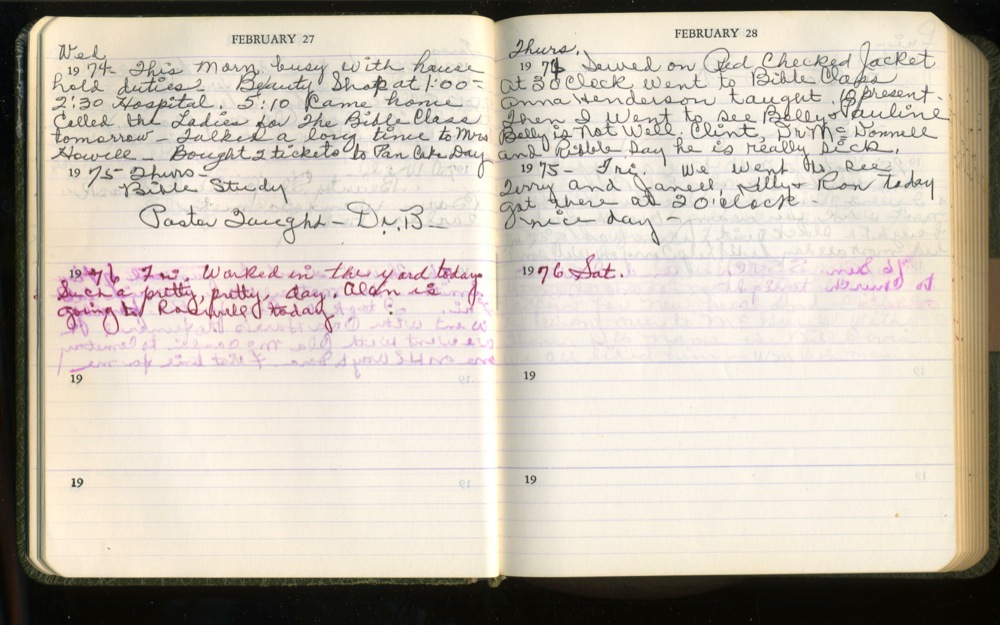 FEBRUARY 27
Wed
1974 - This morn busy with house
hold duties - Beauty Shop at 1:00 -
2:30 Hospital. 5:10 Came home
Called the Ladies for The Bible Class
tomorrow - Talked a long time to Mrs
Howell - Bought 2 tickets to Pan Cake Day
1975 - Thurs -
Bible Study
Pastor Taught - Dr. B -
1976 Fri. Worked in the yard today
Such a pretty, pretty, day. Alan is
going to Roswell today
19
19
FEBRUARY 28
Thurs.
1974 Sewed on Red Checked Jacket
at 3 O Clock went to Bible Class
Anna Henderson taught. 12 present.
Then I Went to see Bolly & Pauline
Bolly is Not Well. Clint, Dr Mc Donnell
and Ribble Say he is really sick.
1975 - Fri. We went to see
Terry and Janell, + Ron today
got there at 2 O'clock -
nice day -
1976 Sat.
19
19